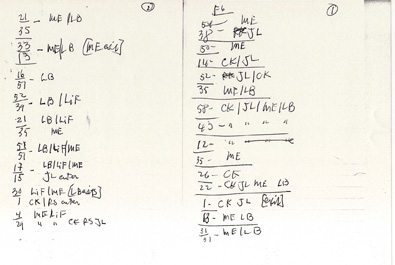 2
21 - ME/LB
35
33 - ME/LB [ME
13
16 - LB
51
52 - LB/LiF
39
21 LB/LiF
35 ME
51 - LB/LiF/ME
17 - LB/LiF/ME
18 JL enter
30 LiF/ME
1 CK/RS enter
4 ME LiF
29 " " CK RS JL
1
E6
ME
38 - JL
50 - ME
14 - CK/JL
52 - JL/CK
35 ME/LB
58 - CK/JL/ME/LB
43 - " " " "
12 - "
35 - ME
26 - CK
22 - CK JL ME LB
1 - CK JL
13 - ME LB
31 - ME/LB
51